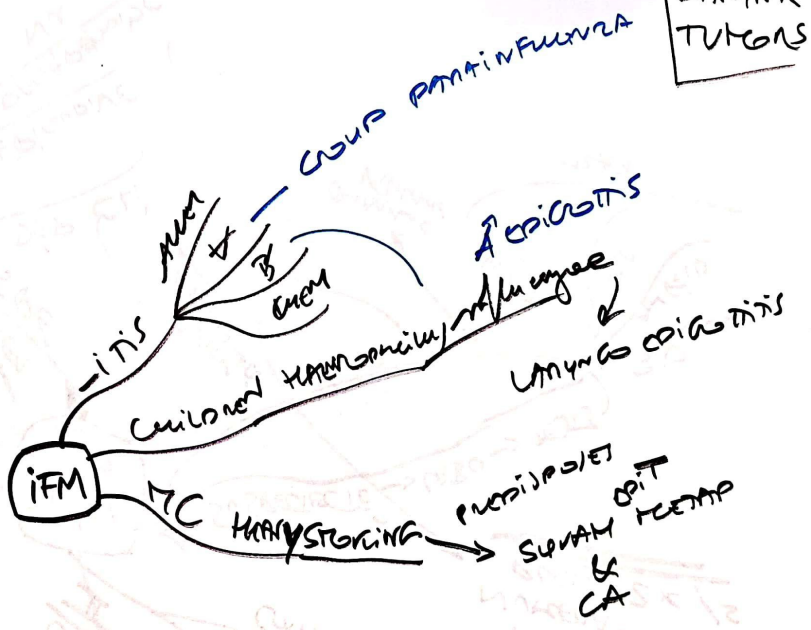 TUMORS
CROUP PARAINFLUENZA
ALLER
V
B
CHEM
-iTiS
↑ EPIGLOTTIS
CHILDREN HAEMOPHILUS influenzae
LARYNGO EPIGLOTTITIS
iFM
MC HEAVY SMOKING
PREDISPOSES
SQUAM EPIT METAP
&
CA